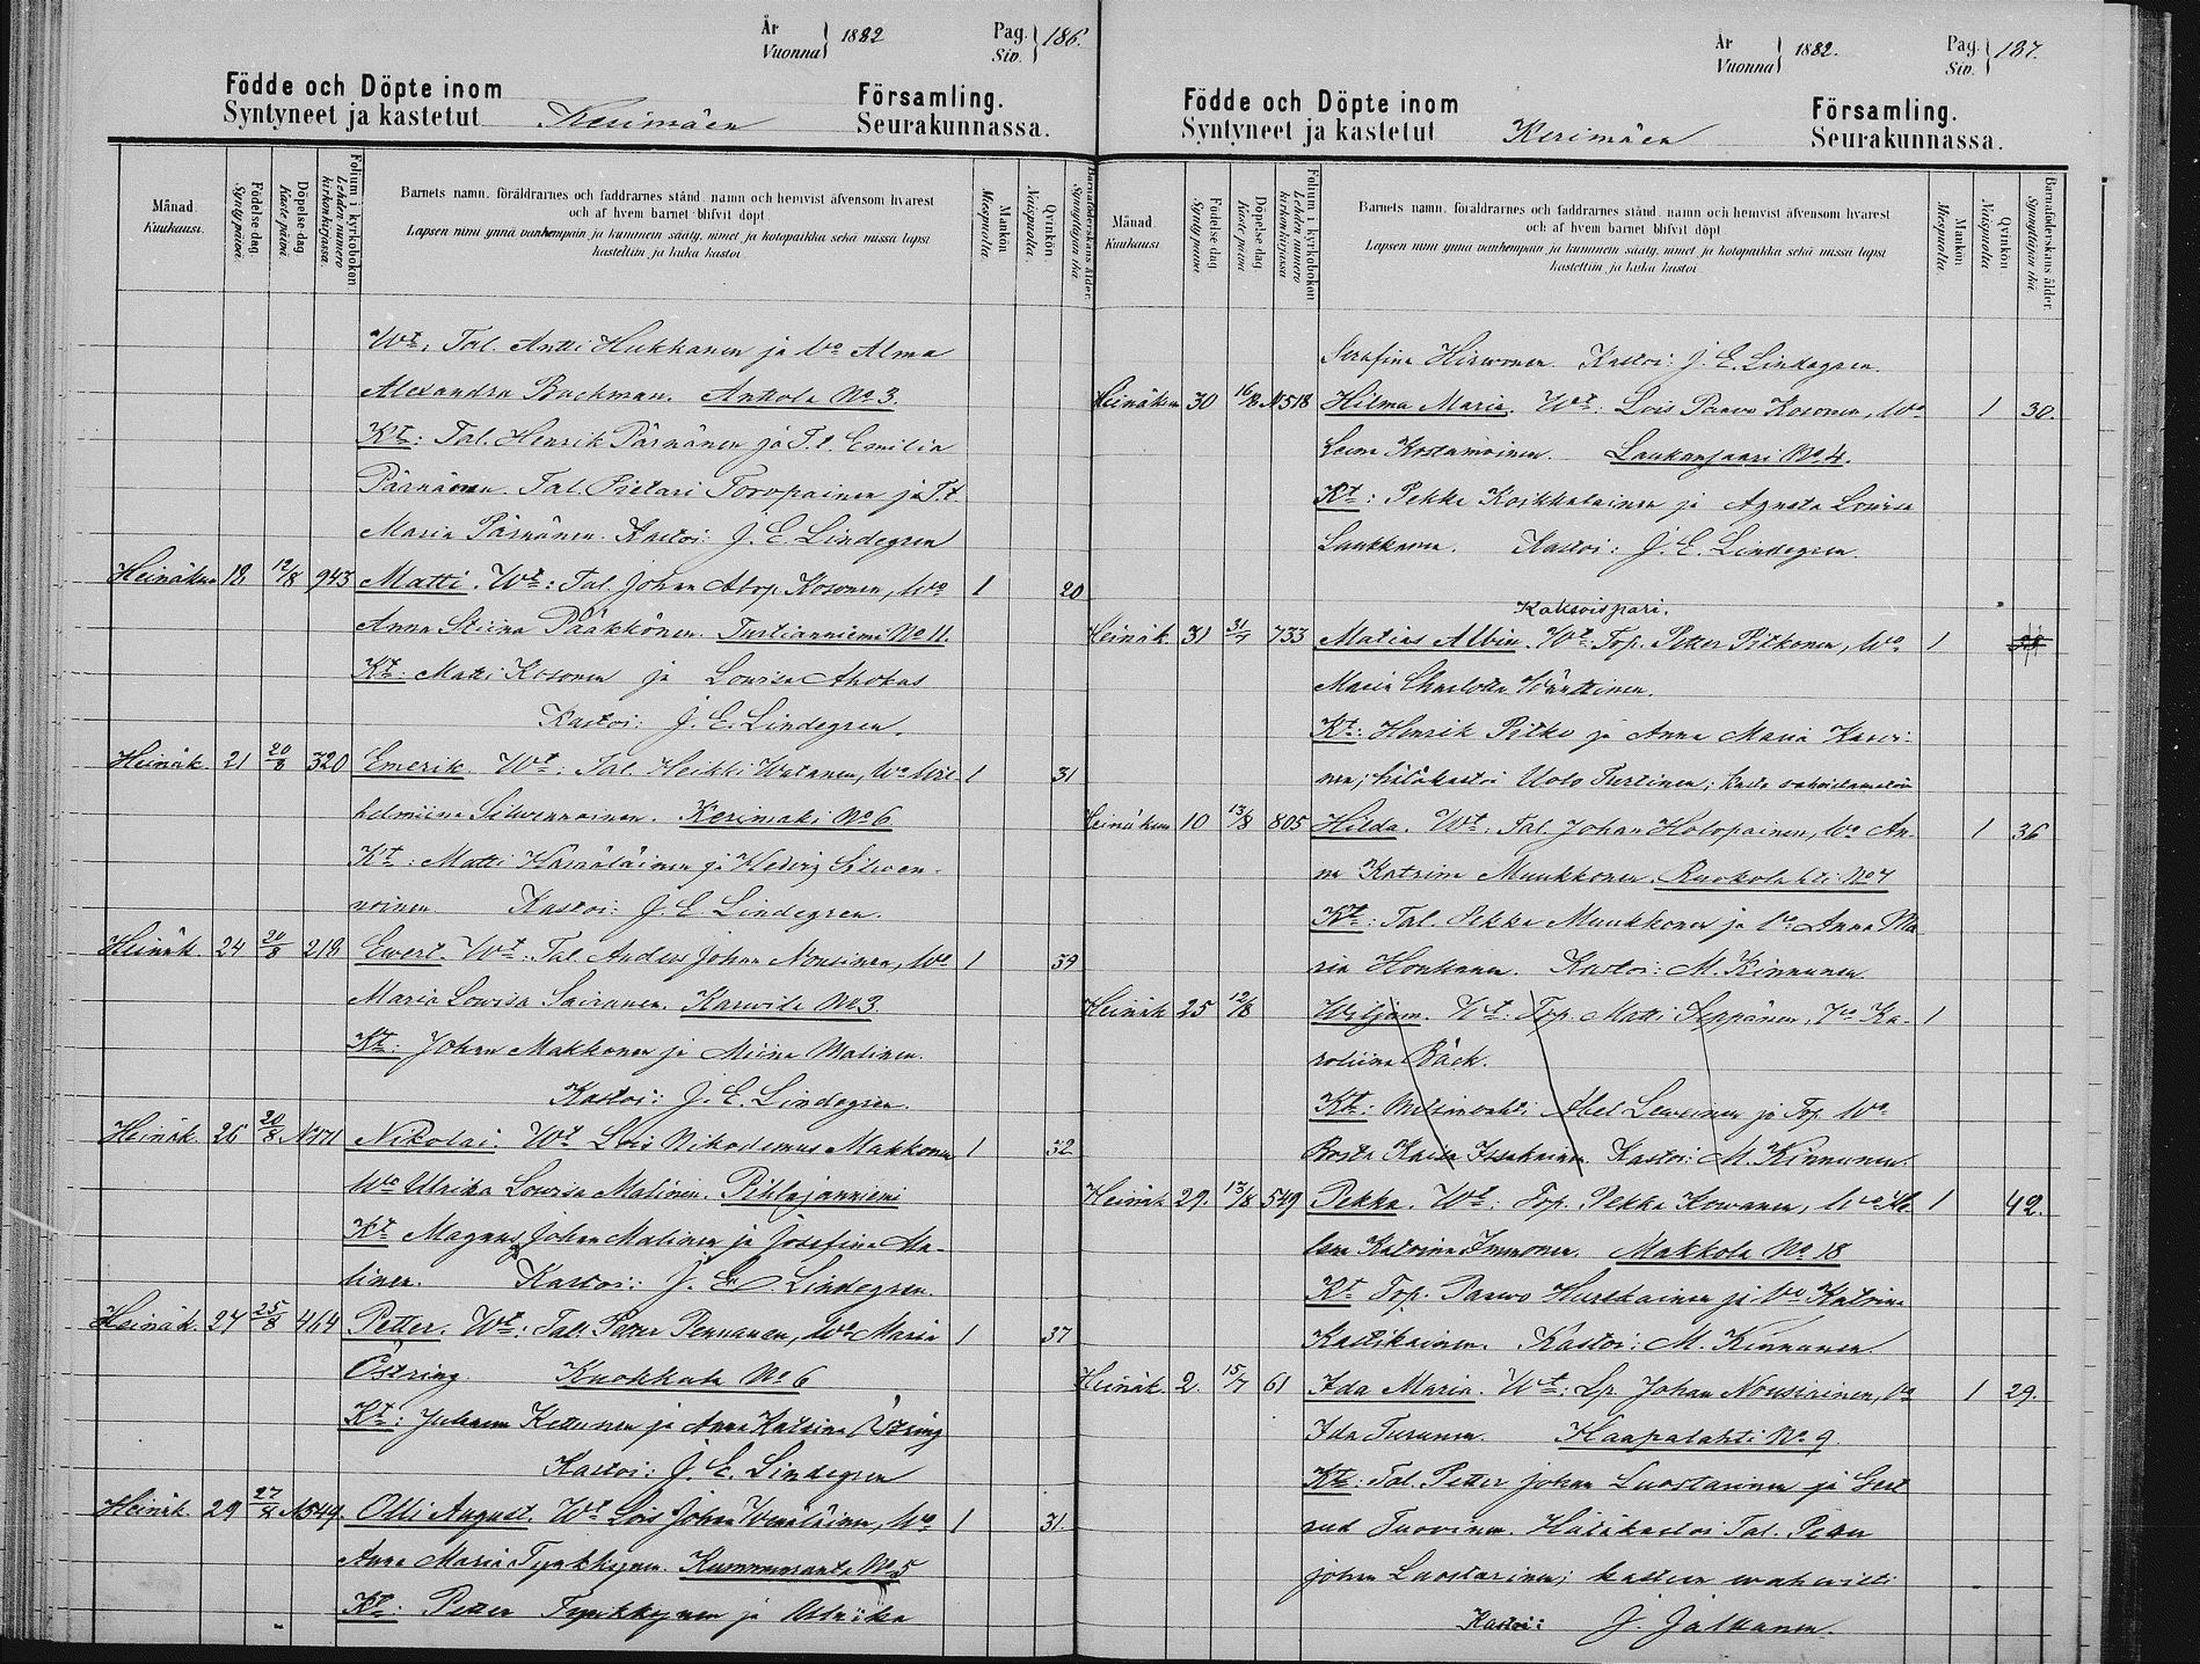 År Vuonna } 1882 Pag. Siv. } 186.
Födde och Döpte inom Församling.
Syntyneet ja kastetut Kerimäen Seurakunnassa.
Månad. Kuukausi.
Födelse dag. Syntypäivä.
Döpelse dag. Kaste päivä.
Folium i kyrkoboken Lehden numero kirkonkirjassa.
Barnets namn, föräldrarnes och faddrarnes stånd, namn och hemvist äfvensom hvarest
och af hvem barnet blifvit döpt.
Lapsen nimi ynnä vanhempain ja kummein sääty, nimet ja kotopaikka sekä missä lapsi
kastettiin ja kuka kastoi.
Mankön Miespuolta.
Qvinkön Naispuolta.
Barnaföderskans ålder. Synnyttäjän ikä.
Wt: Tal. Antti Hukkanen ja Vo Alma
Alexandra Backman. Anttola No 3.
Kt: Tal. Henrik Pärnänen ja T.t. Emilia
Pärnänen. Tal. Pietari Toropainen ja T.t.
Maria Pärnänen. Kastoi: J. E. Lindegren
Heinäkuu 12 12/8 943 Matti. Wt: Tal. Johan Abrp. Kosonen, Wo 1 20
Anna Stiina Pääkkönen. Turtianniemi No 11.
Kt: Matti Kosonen ja Lowisa Ahokas
Kastoi: J. E. Lindegren.
Heinäk. 21 20/8 320 Emerik. Wt: Tal. Heikki Watanen, Wo Wil- 1 31
helmiina Silwennoinen. Kerimäki No 6
Kt: Matti Hämäläinen ja Hedvig Silwen-
noinen. Kastoi: J. E. Lindegren.
Heinäk. 24 20/8 218 Ewert. Wt: Tal. Anders Johan Nousinen, Wo 1 39
Maria Lowisa Sairanen. Karwila No 3.
Kt: Johan Makkonen ja Miina Malinen.
Kastoi: J. E. Lindegren.
Heinäk. 26 20/8 N 171 Nikolai. Wt Lois Nikodemus Makkonen 1 32
Wo Ulrika Lowisa Malinen. Pihlajanniemi
Kt Magnus Johan Malinen ja Josefina Ma-
linen. Kastoi: J. E. Lindegren.
Heinäk. 27 25/8 464 Petter. Wt: Tal. Petter Pennanen, Wo Maria 1 37
Östring. Kuokkala No 6
Kt: Juhana Kettunen ja Anna Katriina Östring
Kastoi: J. E. Lindegren
Heinäk. 29 27/8 N 549. Olli August. Wt Lois Johan Wenäläinen, Wo 1 31.
Anna Maria Tynkkynen. Kummunranta No 5
Kt: Petter Tynkkynen ja Ulriika
År Vuonna } 1882. Pag. Siv. } 187.
Födde och Döpte inom Församling.
Syntyneet ja kastetut Kerimäen Seurakunnassa.
Månad. Kuukausi
Födelse dag Syntypäivä
Döpelse dag. Kaste päivä
Folium i kyrkoboken Lehden numero kirkonkirjassa
Barnets namn, föräldrarnes och faddrarnes stånd, namn och hemvist äfvensom hvarest
och af hvem barnet blifvit döpt
Lapsen nimi ynnä vanhempain ja kummein sääty, nimet ja kotopaikka sekä missä lapsi
kastettiin ja kuka kastoi
Mankön Miespuolta.
Qvinkön Naispuolta
Barnaföderskans ålder. Synnyttäjän ikä.
Serafina Hirwonen. Kastoi: J. E. Lindegren.
Heinäkuu 30 16/8 N 518 Hilma Maria. Wt: Lois Paavo Kosonen, Wo 1 30.
Leena Kostamoinen. Laukansaari No 4.
Kt: Pekka Koikkalainen ja Agneta Lowisa
Laukkanen. Kastoi: J. E. Lindegren.
Kaksoispari.
Heinäk. 31 31/7 733 Matias Albin. Wt: Top. Petter Pitkonen, Wo 1
Maria Charlotta Wänttinen.
Kt: Henrik Pitko ja Anna Maria Karvi-
nen; hätäkastoi Uolo Turtinen; Kaste vahvistamatoin
Heinäkuu 10 13/8 805 Hilda. Wt. Tal. Johan Holopainen, Wo An- 1 36
na Katrina Muukkonen. Ruokolahti No 7
Kt: Tal. Pekka Muukkonen ja Vo Anna Ma
ria Honkanen. Kastoi: M. Kinnunen
Heinäk 25 12/8 Wiljam. Wt: Top. Matti Seppänen, Wo Ka- 1
roliina Bäck.
Kt: Abel Leweinen ja Top. Wo
Kaisa Issakainen. Kastoi: M. Kinnunen.
Heinäk 29. 13/8 549 Pekka. Wt: Top. Pekka Kowanen, Wo He- 1 42.
lena Katriina Immonen. Makkola No 18
Kt Top. Paavo Hurskainen ja Vo Katriina
Kastikainen. Kastoi: M. Kinnunen.
Heinäk. 2. 15/7 61 Ida Maria. Wt: Lp. Johan Nousiainen, Vo 1 29.
Ida Turunen. Haapalahti No 9.
Kt: Tal. Petter Johan Luostarinen ja Gert
rud Tuovinen. Hätäkastoi Tal. Petter
Johan Luostarinen; kasteen wahwisti
Kastoi: J. Jalkanen.